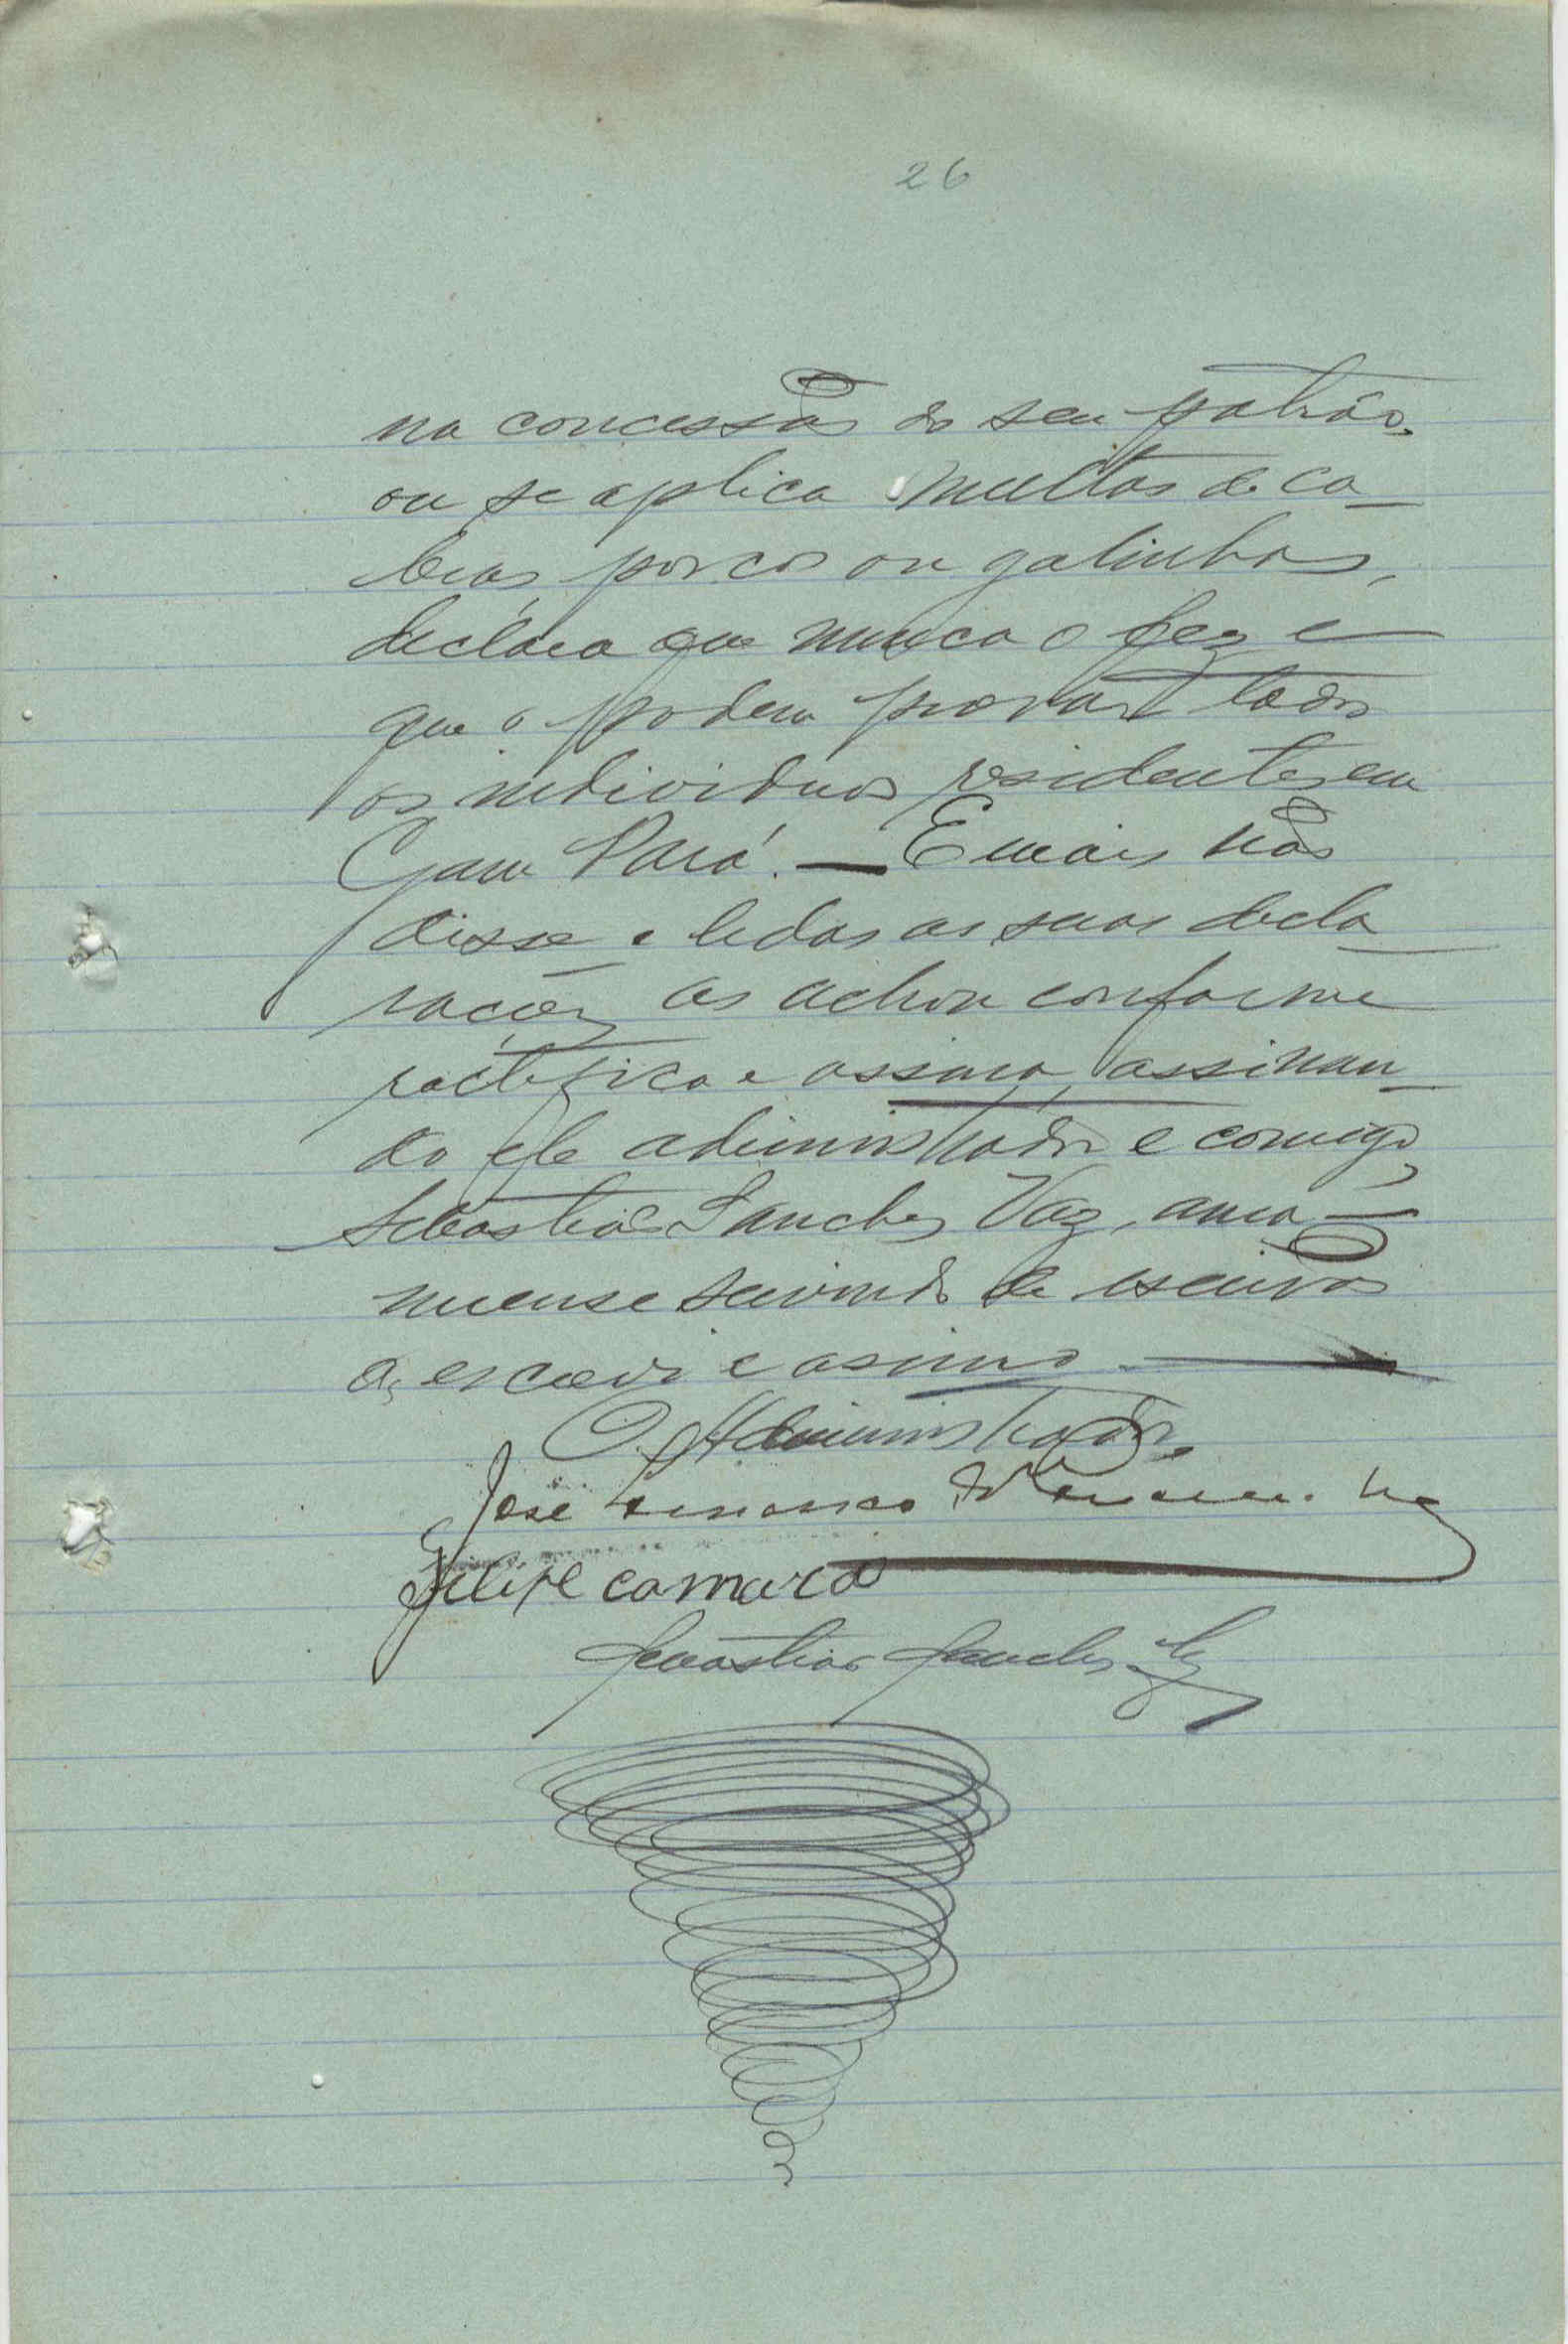 26
na concessão do seu patrão,
ou se aplica multas de ca-
bras, porcos ou galinhas,
declara que nunca o fez e
que o podem provar todos
os individuos residentes em
Gam Pará. — E mais não
disse e lidas as suas decla-
rações as achou conforme
ractifica e assina, assinan-
do ele administrador e comigo,
Sebastião Sanches Vaz, ama-
nuense servindo de escrivão
as escrevi e assino —
O Administrador,
José
Felipe camara
Sebastião Sanches Vaz